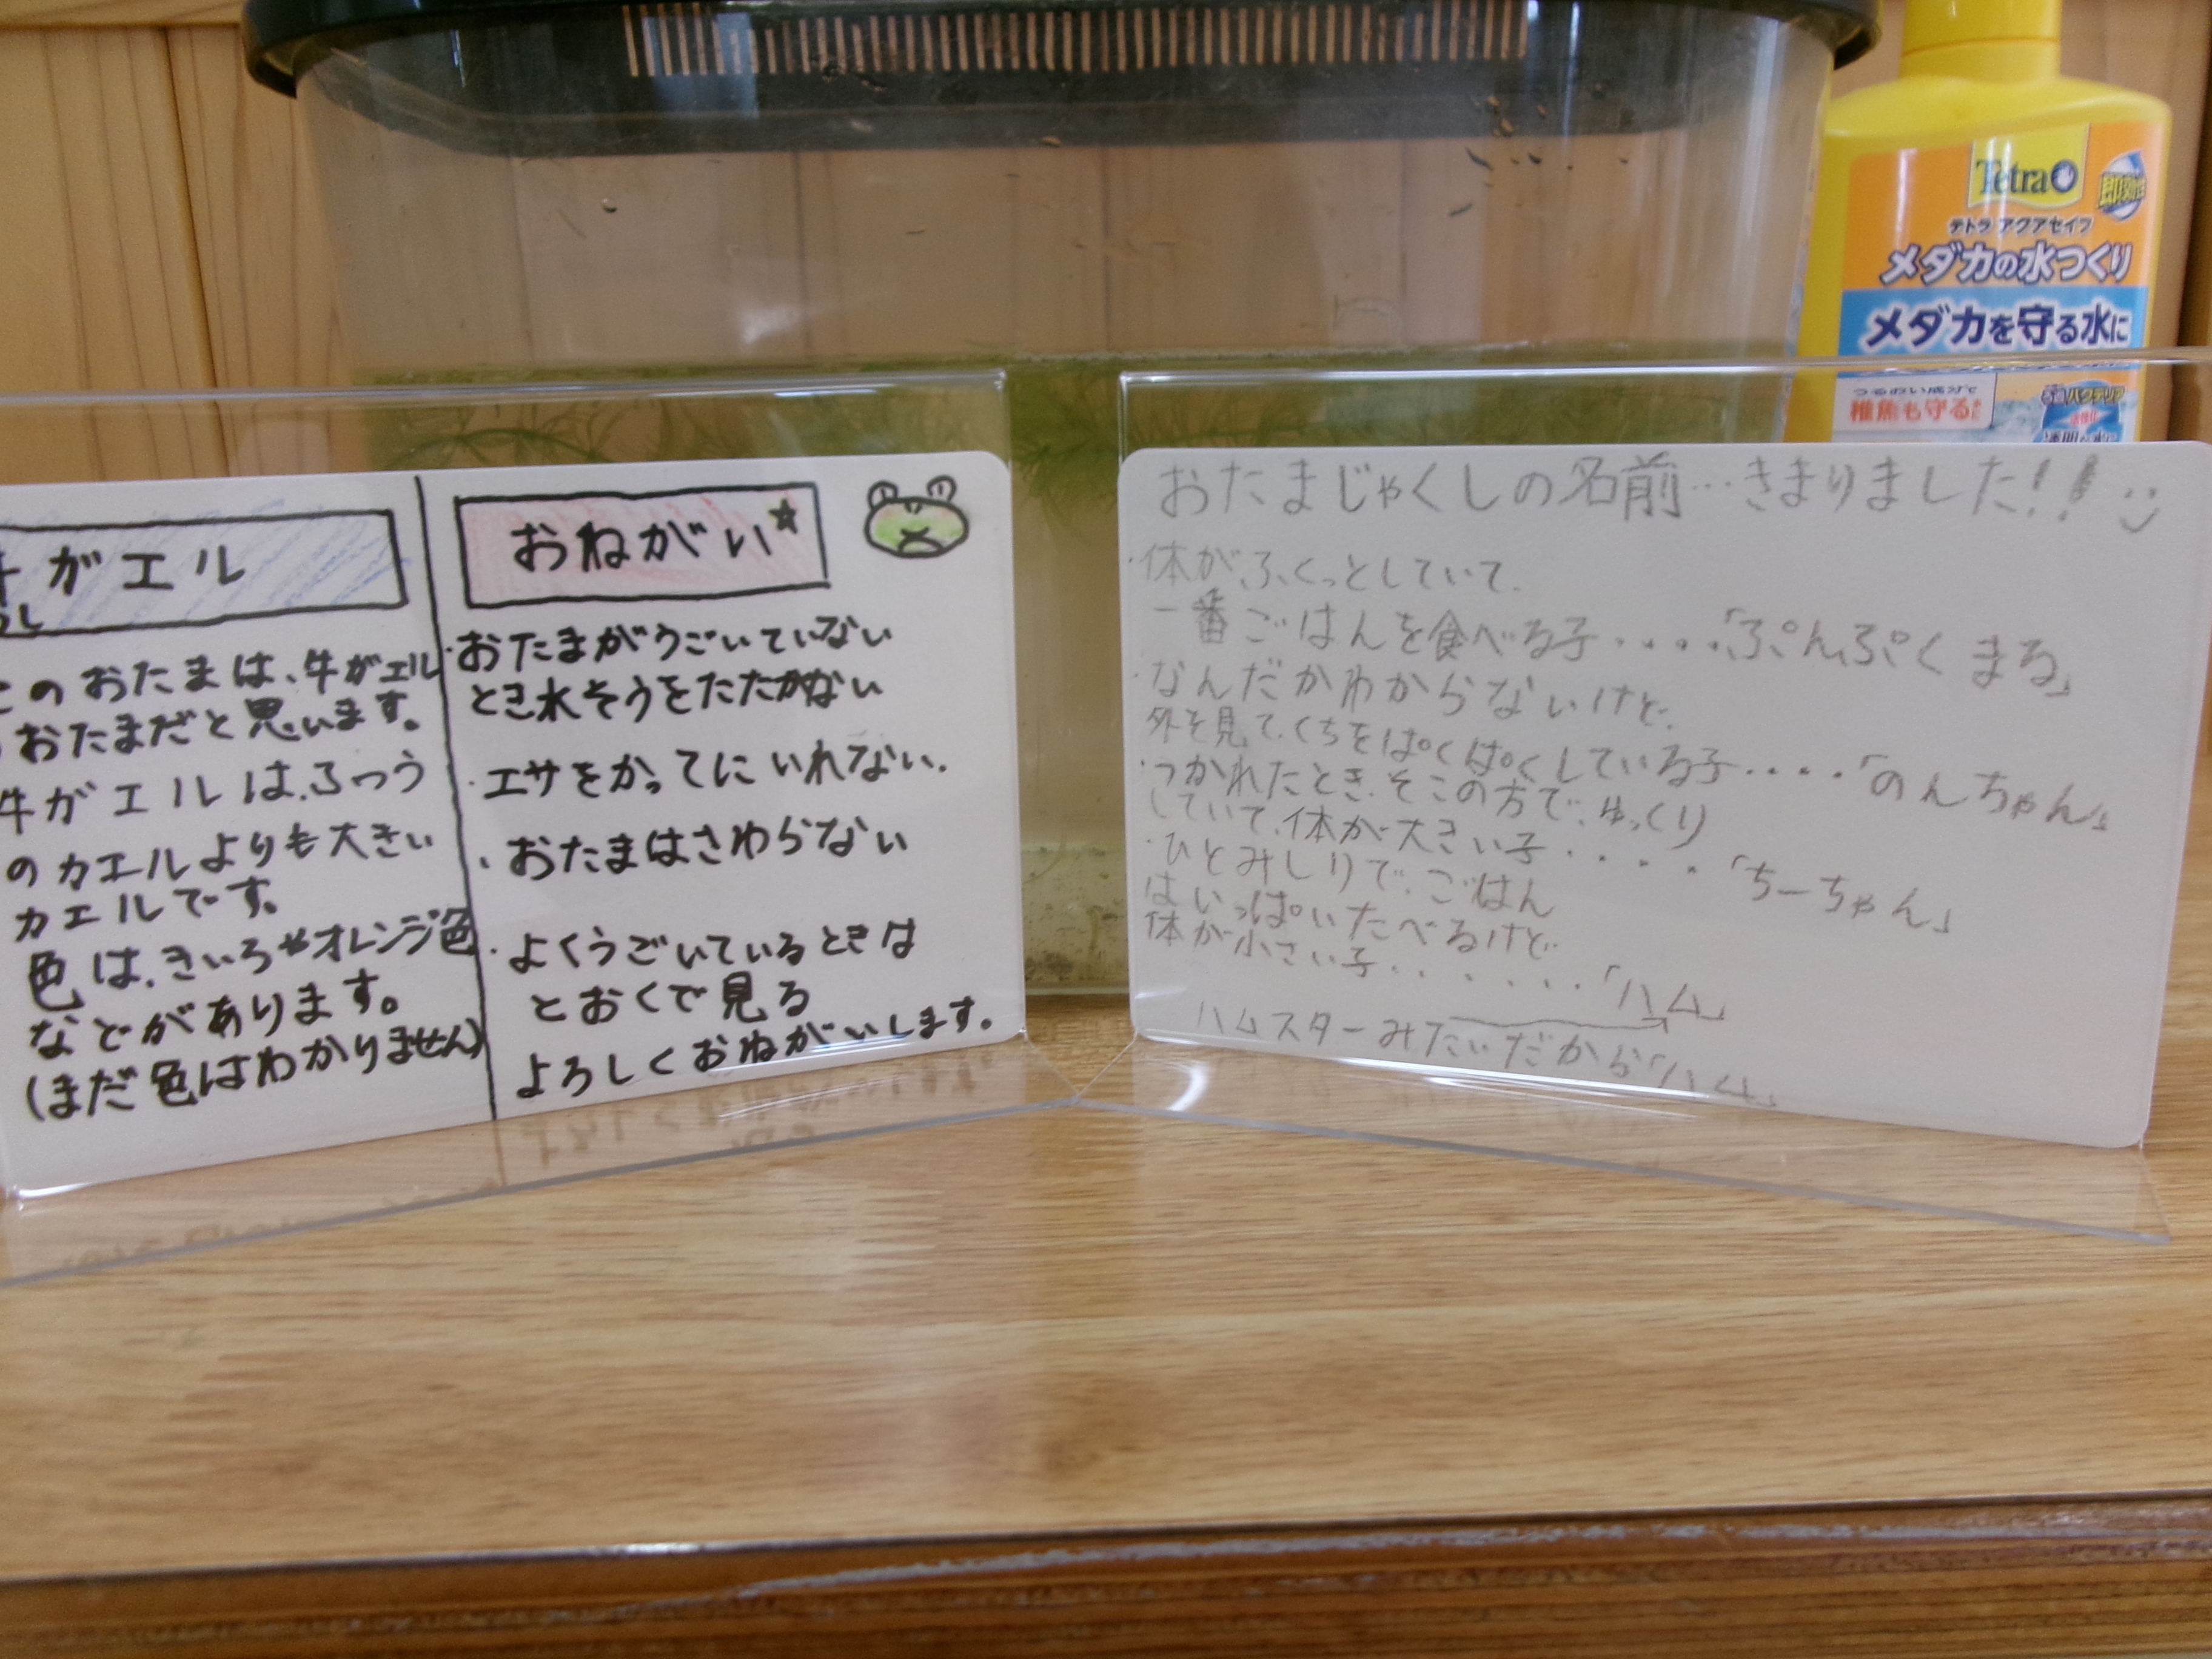 ガエル
うし
このおたまは、牛がエル
おたまだと思います。
牛がエルは、ふつう
のカエルよりも大きい
カエルです。
色は、きいろやオレンジ色
などがあります。
(まだ色はわかりません)
おねがい★
・おたまがうごいていない
とき水そうをたたかない
・エサをかってにいれない.
・おたまはさわらない
・よくうごいているときは
とおくで見る
よろしくおねがいします。
おたまじゃくしの名前…きまりました!!
・体がふくっとしていて、
一番ごはんを食べる子・・・・「ぷんぷくまる」
・なんだかわからないけど、
外を見て、くちをぱくぱくしている子・・・・「のんちゃん」
・つかれたとき、そこの方で、ゆっくり
していて、体が大きい子・・・・「ちーちゃん」
・ひとみしりで、ごはん
はいっぱいたべるけど
体が小さい子・・・・・・「ハム」
ハムスターみたいだから「ハム」
Tetra
テトラ アクアセイフ
メダカの水つくり
メダカを守る水に
うるおい成分で
稚魚も守る
バクテリア